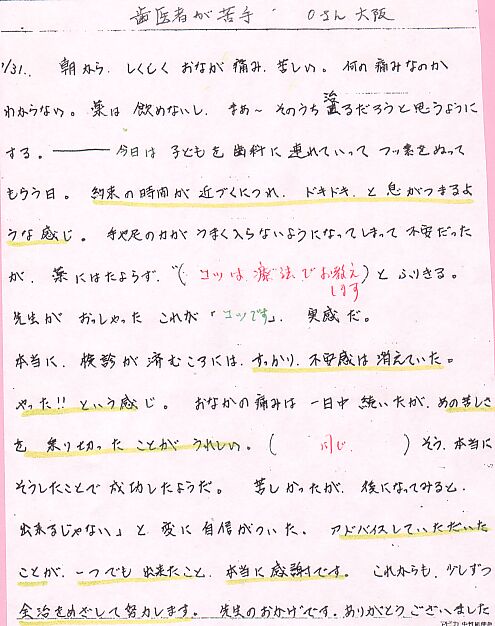 歯医者が苦手 Oさん 大阪
1/31. 朝から、しくしくおなが痛み、苦しい。何の痛みなのか
わからない。薬は飲めないし、まあ~そのうち治るだろうと思うように
する。――― 今日は子どもを歯科に連れていってフッ素をぬって
もらう日。約束の時間が近づくにつれ、ドキドキ、と息がつまるよ
うな感じ。手や足の力がうまく入らないようになってしまって不安だった
が、薬にはたよらず、"(コツは療法でお教え
します)とふりきる。
先生がおっしゃったこれが「コツです」、実感だ。
本当に、検診が済むころには、すっかり、不安感は消えていた。
やった!!という感じ。おなかの痛みは一日中続いたが、あの苦しさ
を乗り切ったことがうれしい。(同じ)そう、本当に
そうしたことで成功したようだ。苦しかったが、後になってみると、
出来るじゃない」と変に自信がついた。アドバイスしていただいた
ことが、一つでも出来たこと、本当に感謝です。これからも、少しずつ
全治をめざして努力します。先生のおかげです。ありがとうございました